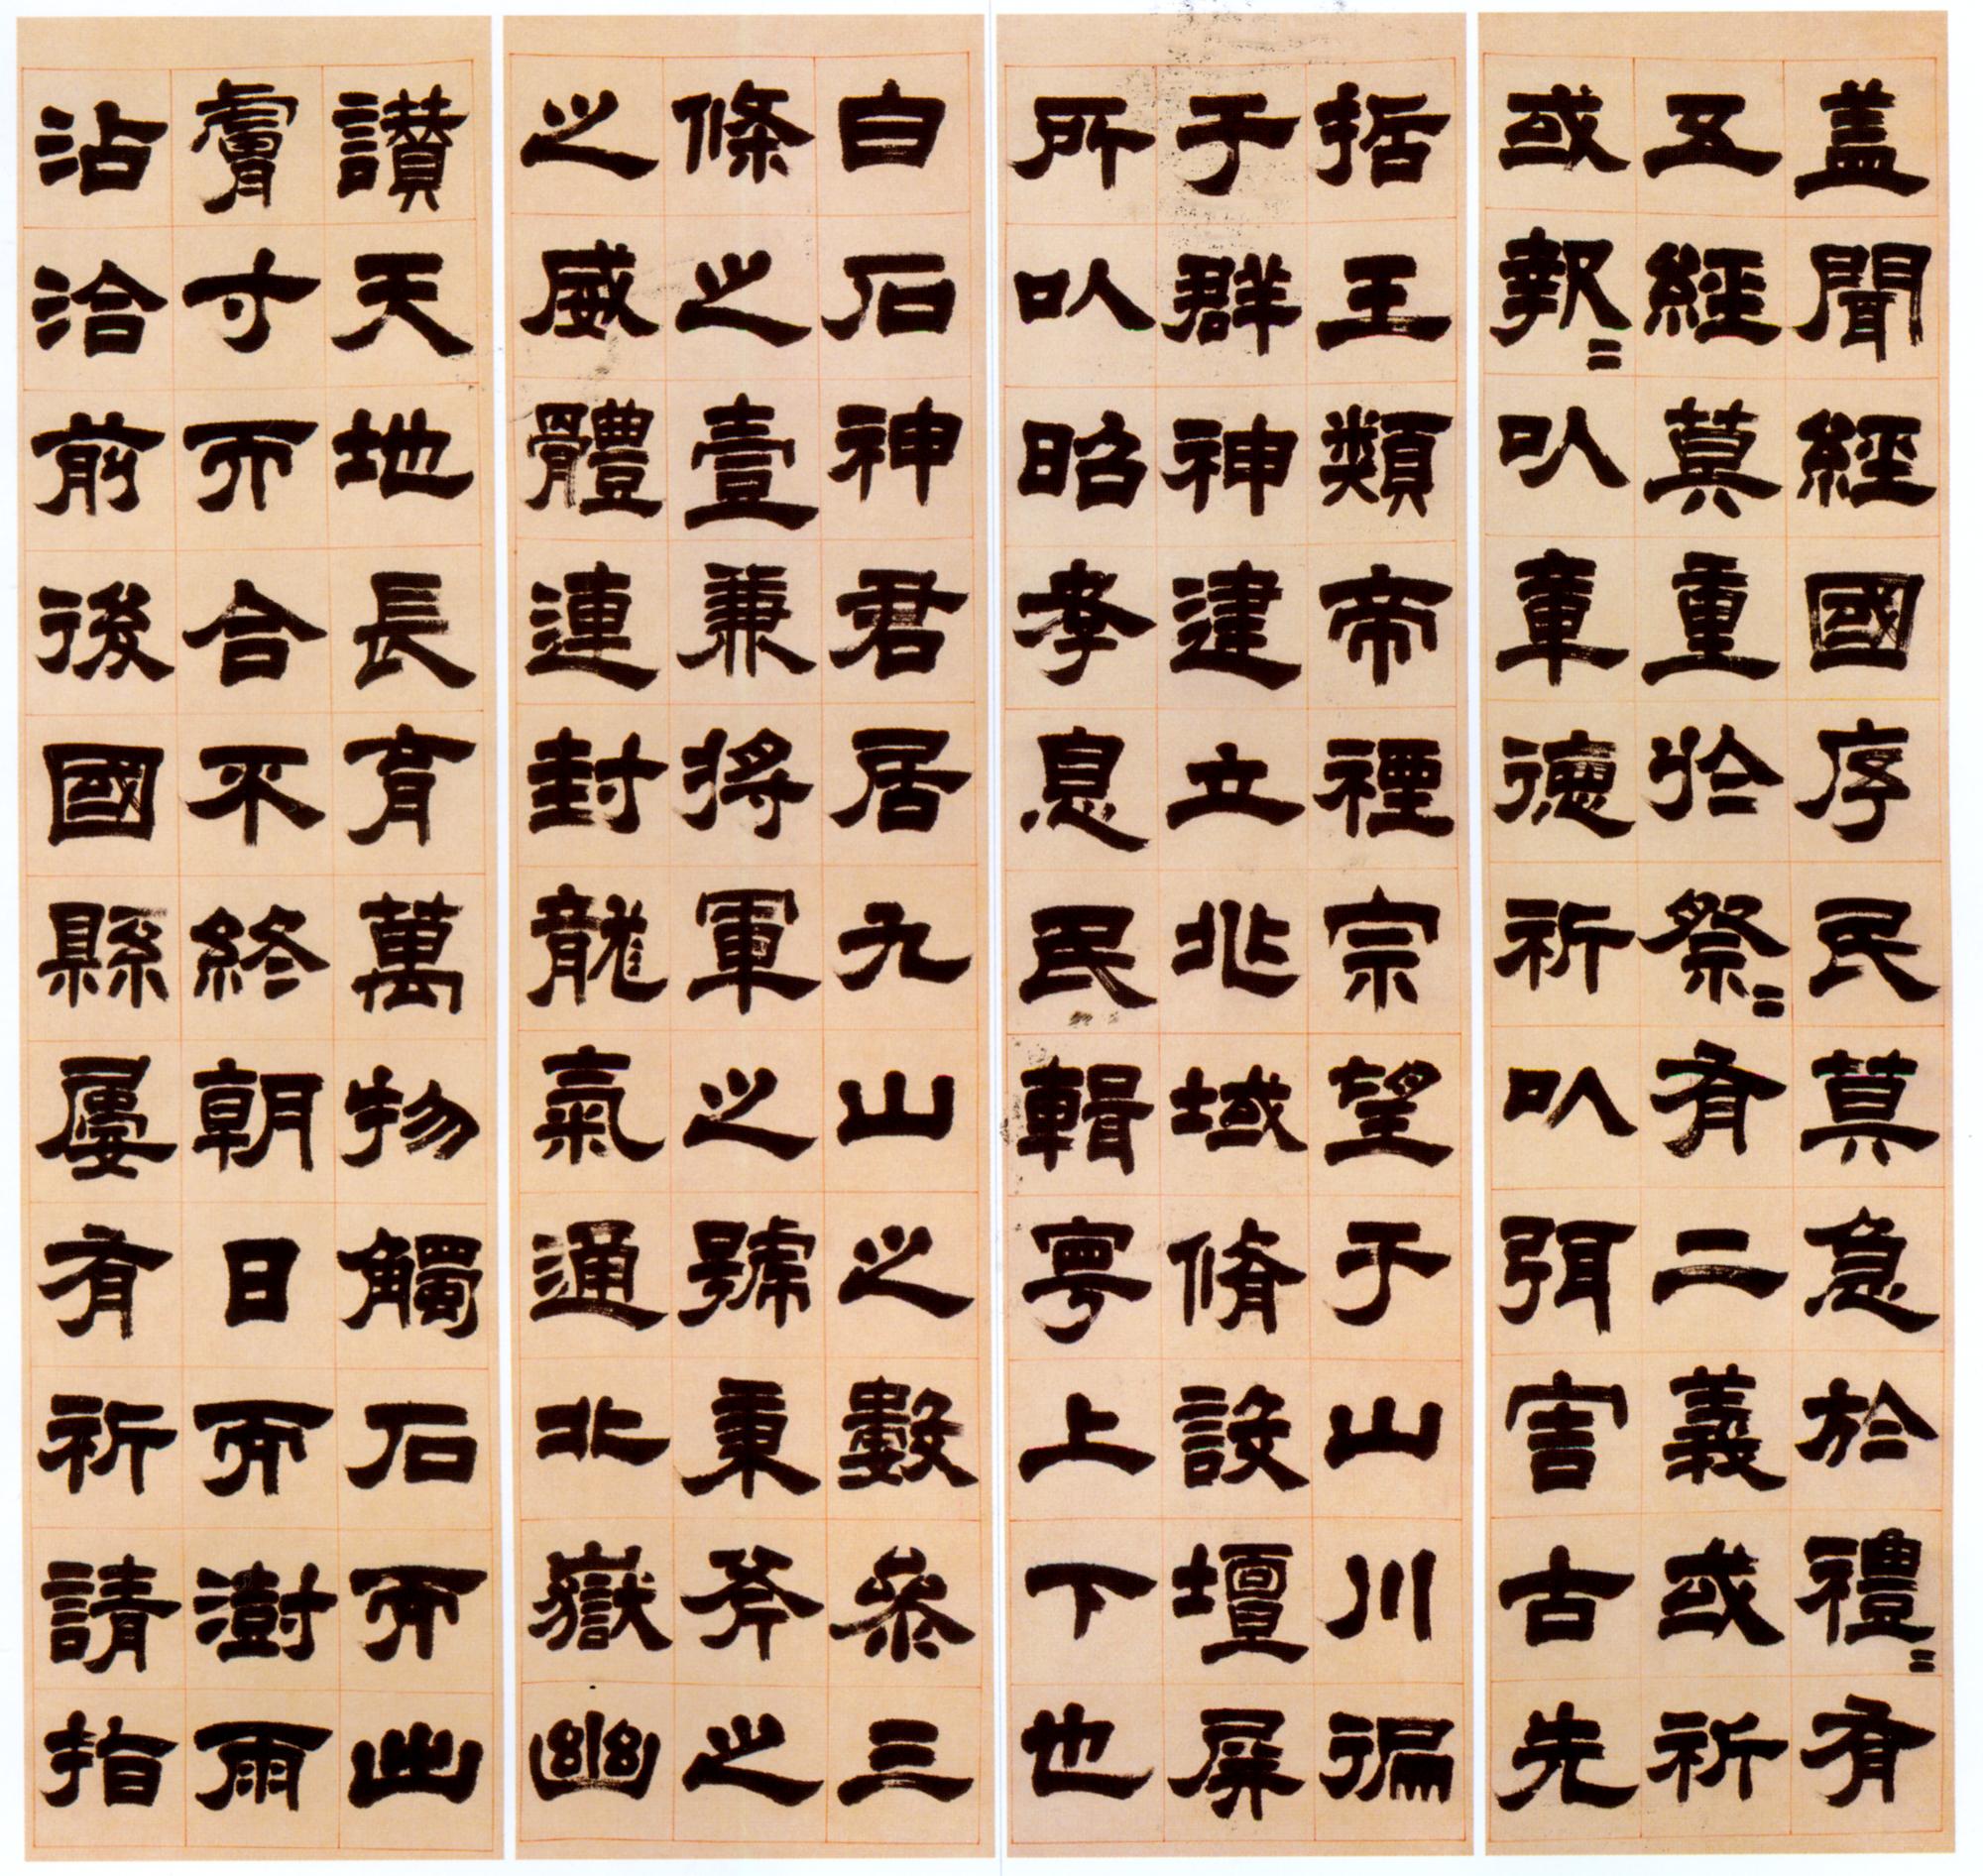 盖聞經國序民莫急於禮=有
五經莫重於祭=有二義或祈
或報=以章德祈以弭害古先
括王類帝禋宗望于山川徧
于群神建立兆域脩設壇屏
所以昭孝息民輯寧上下也
白石神君居九山之數參三
條之壹兼將軍之號秉斧之
之威體連封龍氣通北嶽幽
讃天地長育萬物觸石而出
膚寸而合不終朝日而澍雨
沾洽前後國縣屢有祈請指